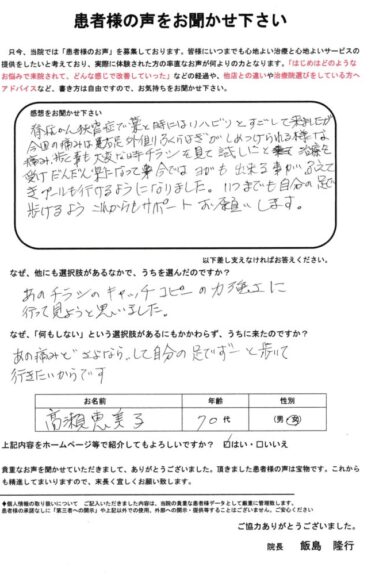 患者様の声をお聞かせ下さい
只今、当院では「患者様のお声」を募集しております。皆様にいつまでも心地よい治療と心地よいサービスの
提供をしたいと考えており、実際に体験された方の率直なお声が何よりの力となります。「はじめはどのような
お悩みで来院されて、どんな感じで改善していった」などの経過や、他店との違いや治療院選びをしている方へ
アドバイスなど、書き方は自由ですので、お気持ちをお聞かせください。
感想をお聞かせ下さい
脊柱かん狭窄症で薬と時にはリハビリとすごして来ましたが
今回の痛みは
ふくらはぎがしめつけられる様な
痛み、歩く事も大変な時チラシを見て試しにと 治療を
受けだんだん楽になって来 今では ヨガも 出来る事が ふえて
きプールも行けるようになりました。いつまでも自分の足で
歩けるよう これからもサポート お願いします。
以下差し支えなければお答えください。
なぜ、他にも選択肢があるなかで、うちを選んだのですか?
あのチラシのキャッチコピーの力強さに
行って見ようと思いました。
なぜ、「何もしない」という選択肢があるにもかかわらず、うちに来たのですか?
あの痛みと さよなら して自分の足でずーと歩いて
行きたいからです
お名前 年齢 性別
高瀬恵美子 70代 (男・女)
上記内容をホームページ等で紹介してもよろしいですか? ☑はい・□いいえ
貴重なお声を聞かせていただきまして、ありがとうございました。頂きました患者様の声は宝物です。これから
も精進してまいりますので、末長く宜しくお願い致します。
◆個人情報の取り扱いについて ご記入いただきました内容は、当院の貴重な患者様データとして厳重に管理致します。
患者様の承諾なしに「第三者への開示」や上記以外での使用、外部への開示・提供等することはございません。ご安心ください
ご協力ありがとうございました。
院長 飯島 隆行